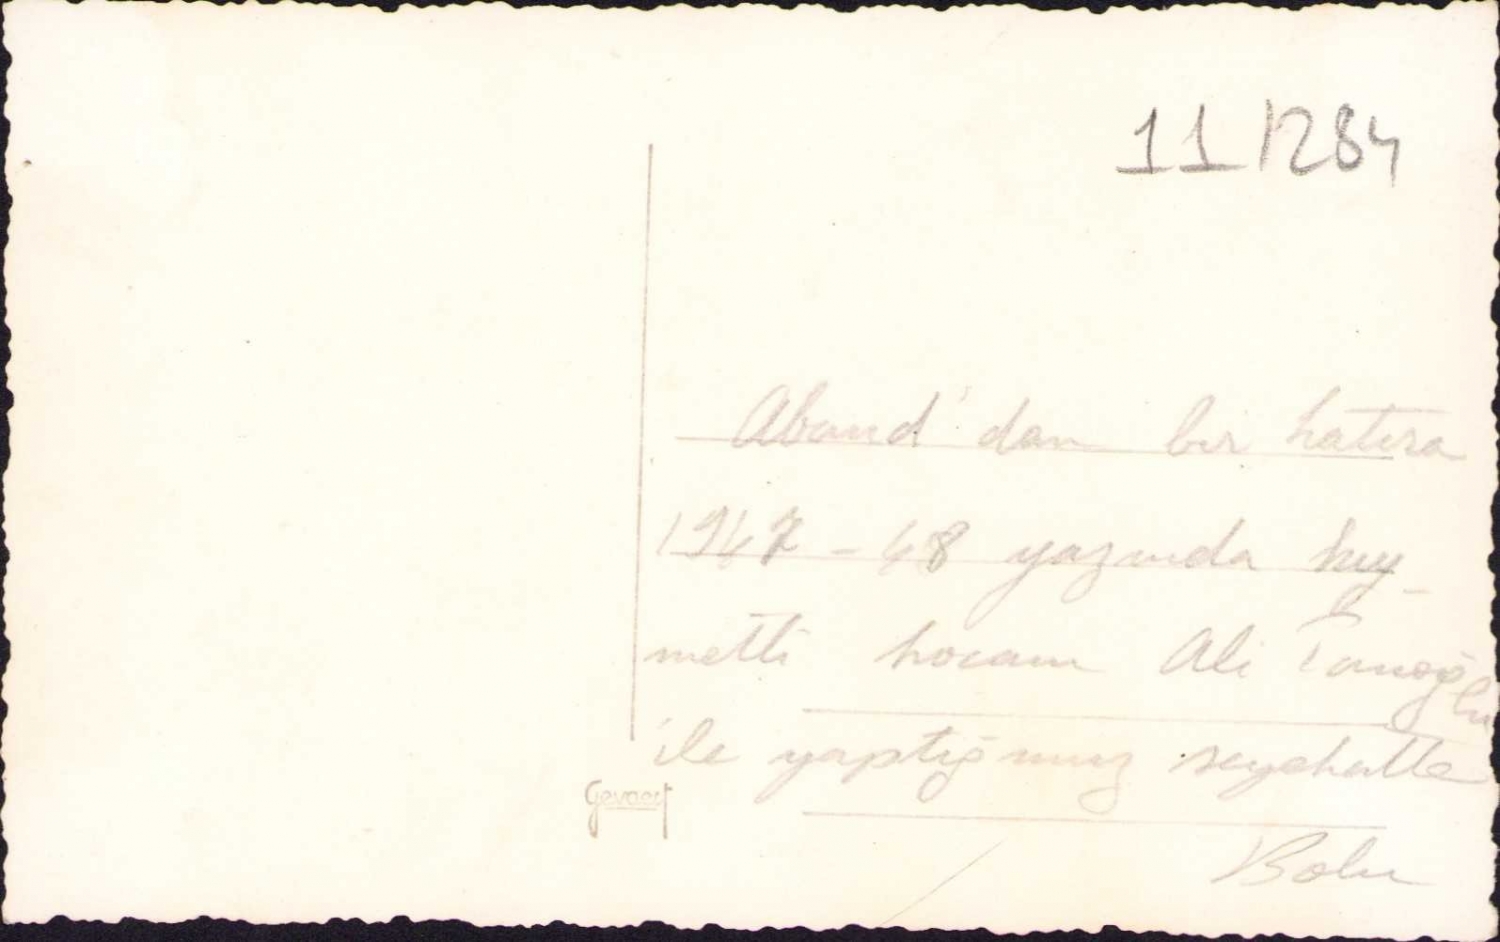 11/284
Aband'dan bir hatıra
1947-48 yazında kıy-
metli hocam Ali Tanoğlu
ile yaptığımız seyehatte
Gevaert
Bolu